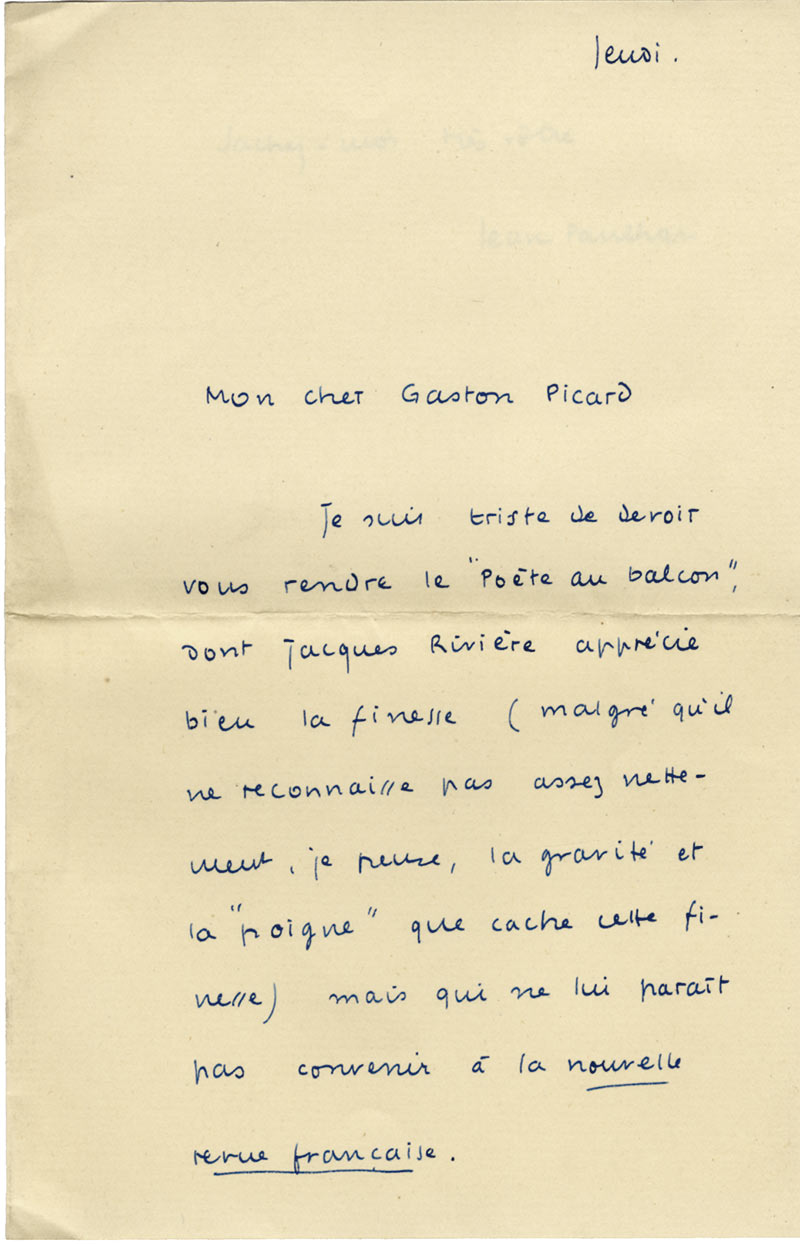 Jeudi.
Jean Paulhan
Mon cher Gaston Picard
Je suis triste de devoir
vous rendre le "Poète au balcon",
dont Jacques Rivière apprécie
bien la finesse (malgré qu'il
ne reconnaisse pas assez nette-
ment, je pense, la gravité et
la "poigne" que cache cette fi-
nesse) mais qui ne lui paraît
pas convenir à la nouvelle
revue française.